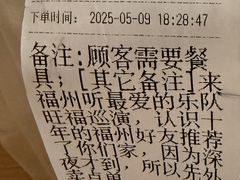 下单时间： 2025-05-09 18:28:47
备注：顾客需要餐
具；[其它备注]来
福州听最爱的乐队
旺福巡演，认识十
年的福州好友推荐
了你们家，因为深
夜才到，所以先外
卖点单